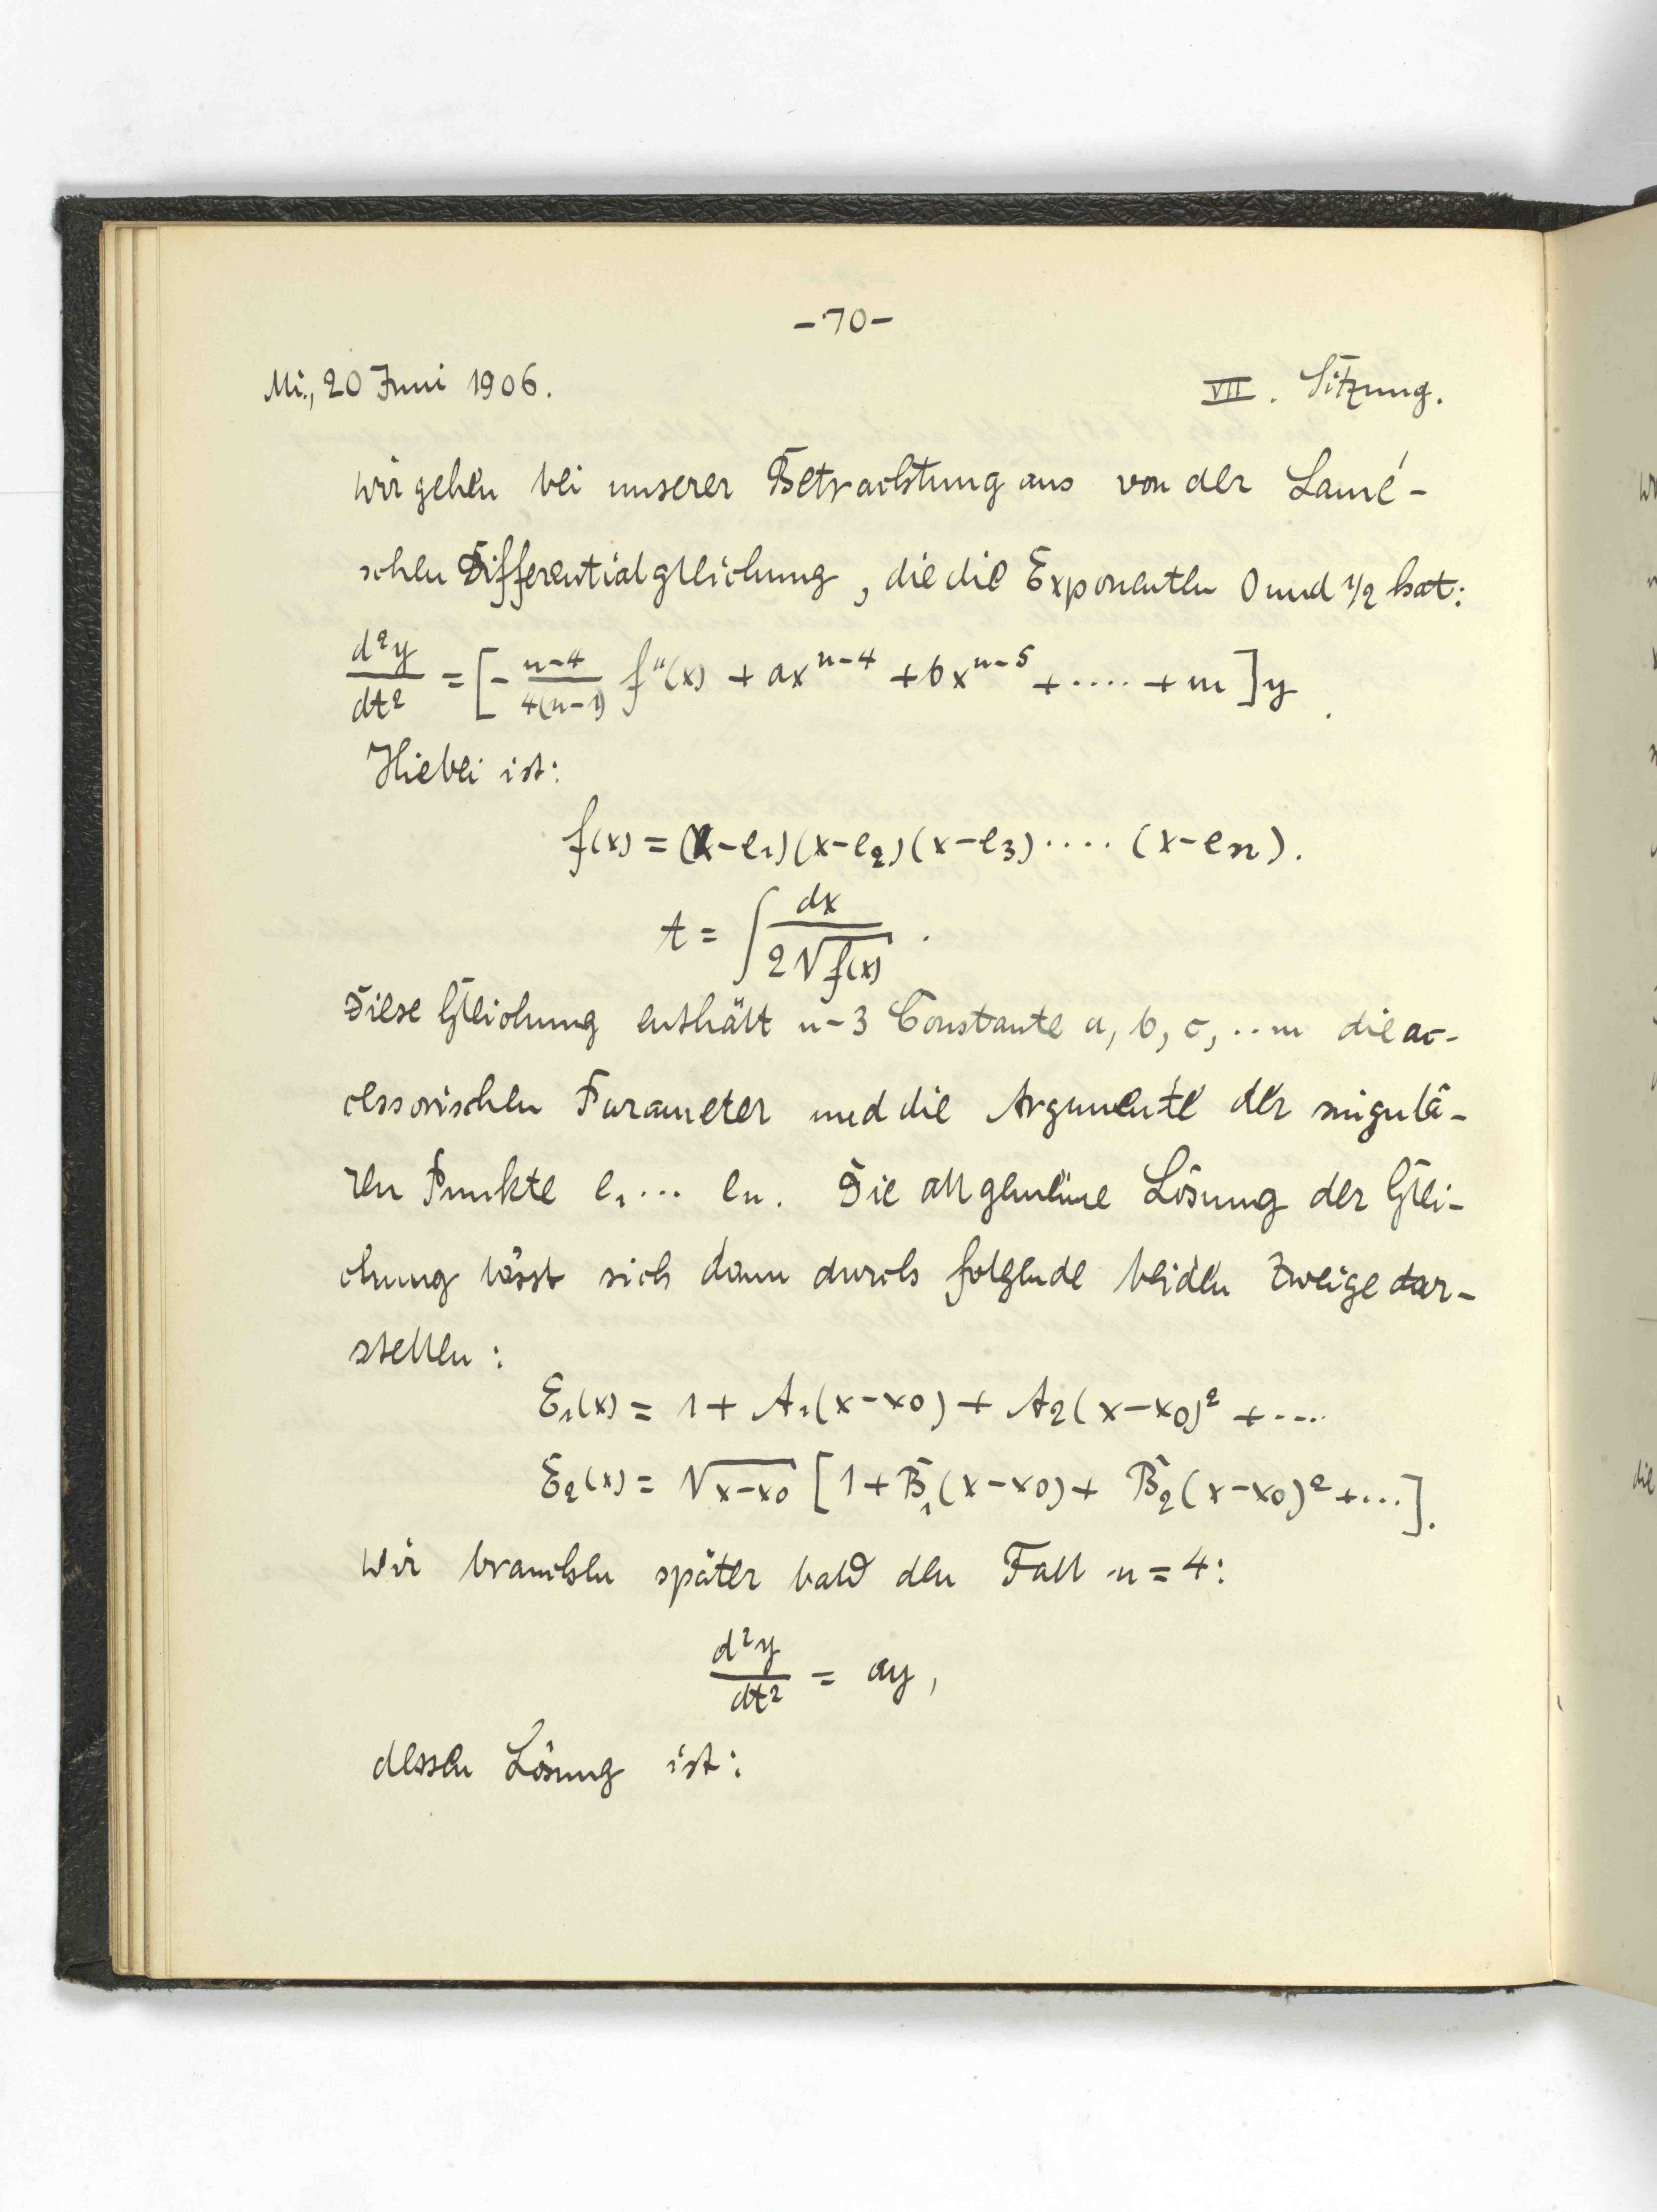 -70-
Mi., 20 Juni 1906. VII. Sitzung.
Wir gehen bei unserer Betrachtung aus von der Lamé-
schen Differentialgleichung, die die Exponenten 0 und 1/2 hat:
d²y/dt² = [- n-4/4(n-1) f''(x) + ax^{n-4} + bx^{n-5} + .... + m ]y.
Hiebei ist:
f(x) = (x-e₁)(x-e₂)(x-e₃) .... (x-eₙ).
t = ∫ dx/2√f(x) .
Diese Gleichung enthält n-3 Constante a, b, c, .. m die ac-
cessorischen Parameter und die Argumente der singulä-
ren Punkte e₁ ... eₙ. Die allgemeine Lösung der Glei-
chung lässt sich dann durch folgende beiden Zweige dar-
stellen:
E₁(x) = 1 + A₁(x-x₀) + A₂(x-x₀)² + ....
E₂(x) = √x-x₀ [1 + B₁(x-x₀) + B₂(x-x₀)² + ...].
Wir brauchen später bald den Fall n = 4:
d²y/dt² = ay,
dessen Lösung ist: